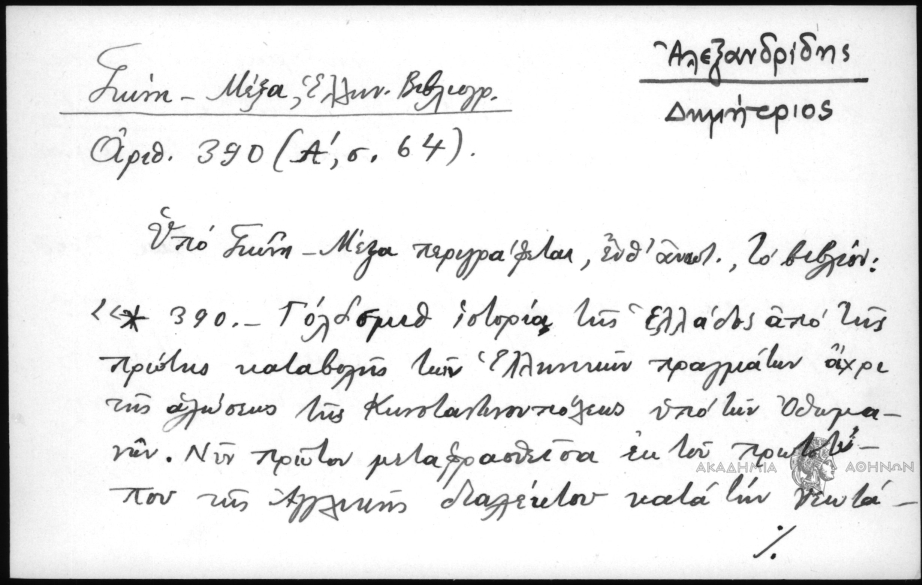 Ἀλεξανδρίδης
Δημήτριος
Γκίνη – Μέξα, Ἑλλην. Βιβλιογρ.
Ἀριθ. 390 (Α΄, σ. 64).
Ὑπό Γκίνη – Μέξα περιγράφεται, ἔνθ' ἀνωτ., τό βιβλίον:
«* 390. – Γόλδσμιθ ἱστορία τῆς Ἑλλάδος ἀπό τῆς
πρώτης καταβολῆς τῶν Ἑλληνικῶν πραγμάτων ἄχρι
τῆς ἁλώσεως τῆς Κωνσταντινουπόλεως ὑπό τῶν Ὀθωμα-
νῶν. Νῦν πρῶτον μεταφρασθεῖσα ἐκ τοῦ πρωτοτύ-
που τῆς Ἀγγλικῆς διαλέκτου κατά τήν νεωτά-
./.
ΑΚΑΔΗΜΙΑ ΑΘΗΝΩΝ